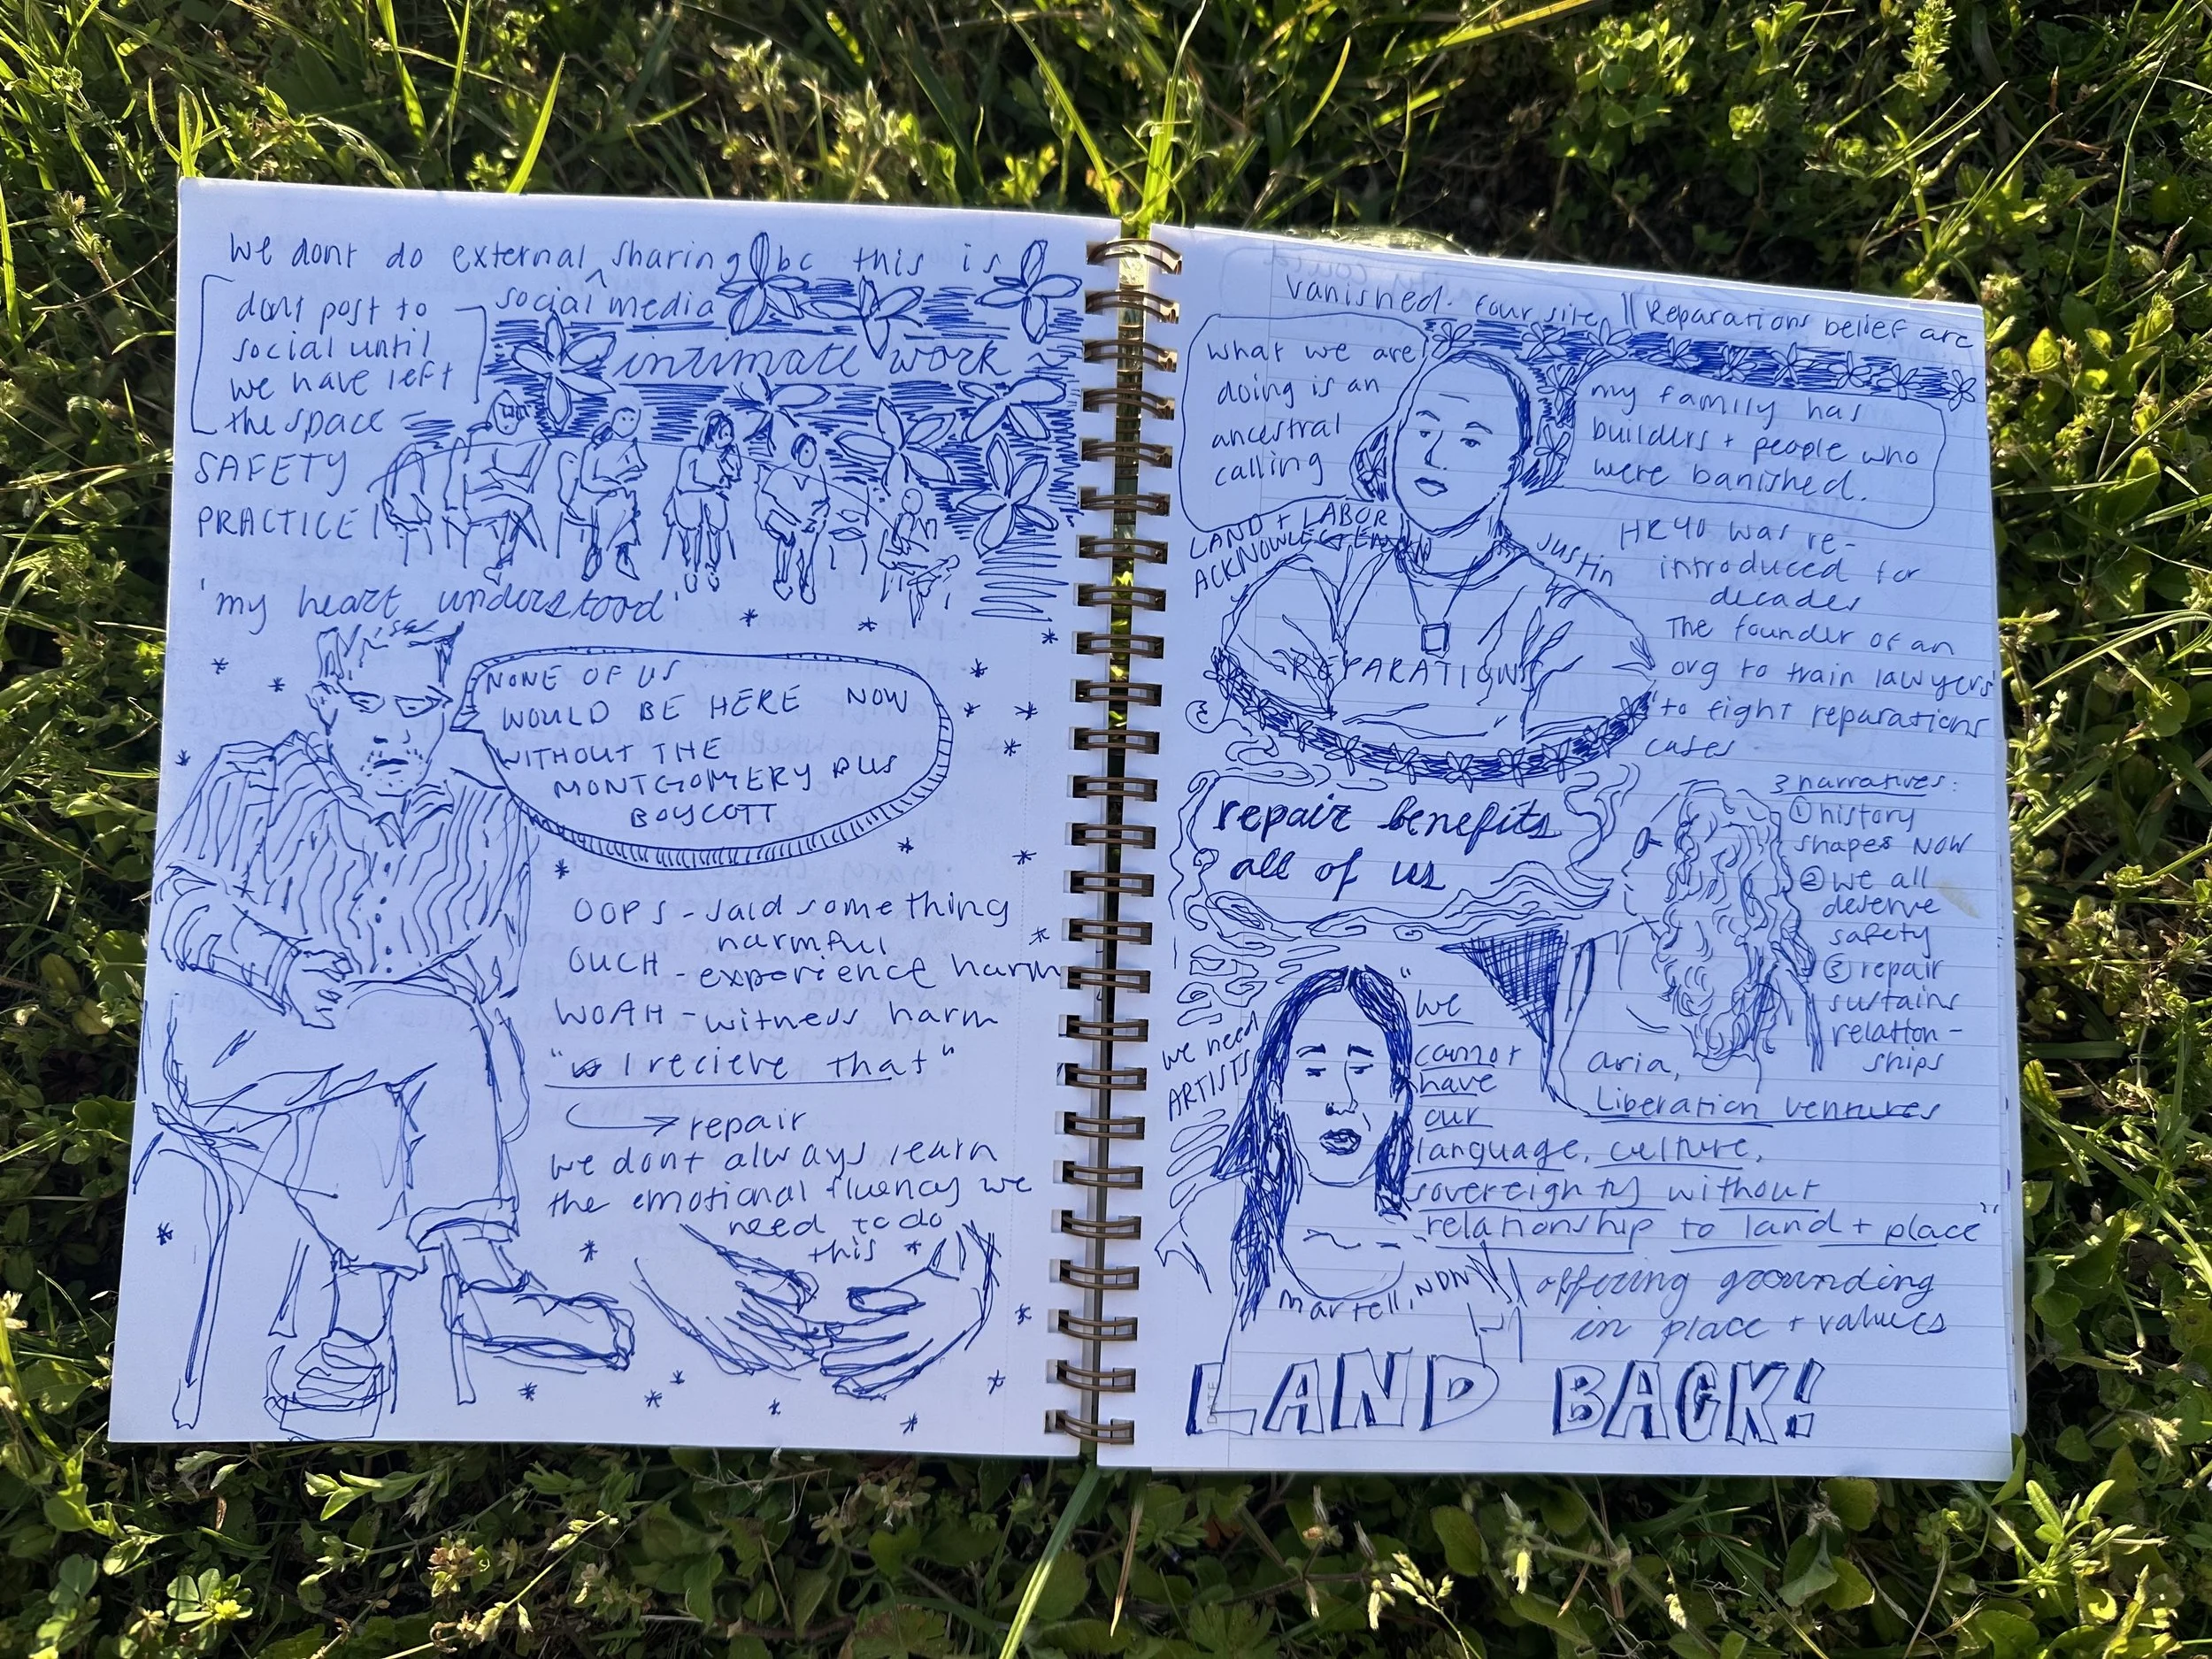 we dont do external sharing bc this is
social media
dont post to
social until
we have left
the space
intimate work
SAFETY
PRACTICE!
'my heart understood'
NONE OF US
WOULD BE HERE NOW
WITHOUT THE
MONTGOMERY BUS
BOYCOTT
OOPS - said something
harmful
OUCH - experience harm
WOAH - witness harm
"I recieve that"
repair
we dont always learn
the emotional fluency we
need to do
this
vanished. four site || Reparations belief are
what we are
doing is an
ancestral
calling
my family has
builders + people who
were banished.
LAND + LABOR
ACKNOWLEGEMENT
Justin
HR40 was re-
introduced for
decades
The founder of an
org to train lawyers
to fight reparations
cases
REPARATIONS
repair benefits
all of us
3 narratives:
① history
shapes NOW
② we all
deserve
safety
③ repair
sustains
relation-
ships
Aria,
Liberation ventures
we need
ARTISTS
"we
cannot
have
our
language, culture,
sovereignty without
relationship to land + place"
Martell, NDN
offering grounding
in place + values
LAND BACK!
DATE